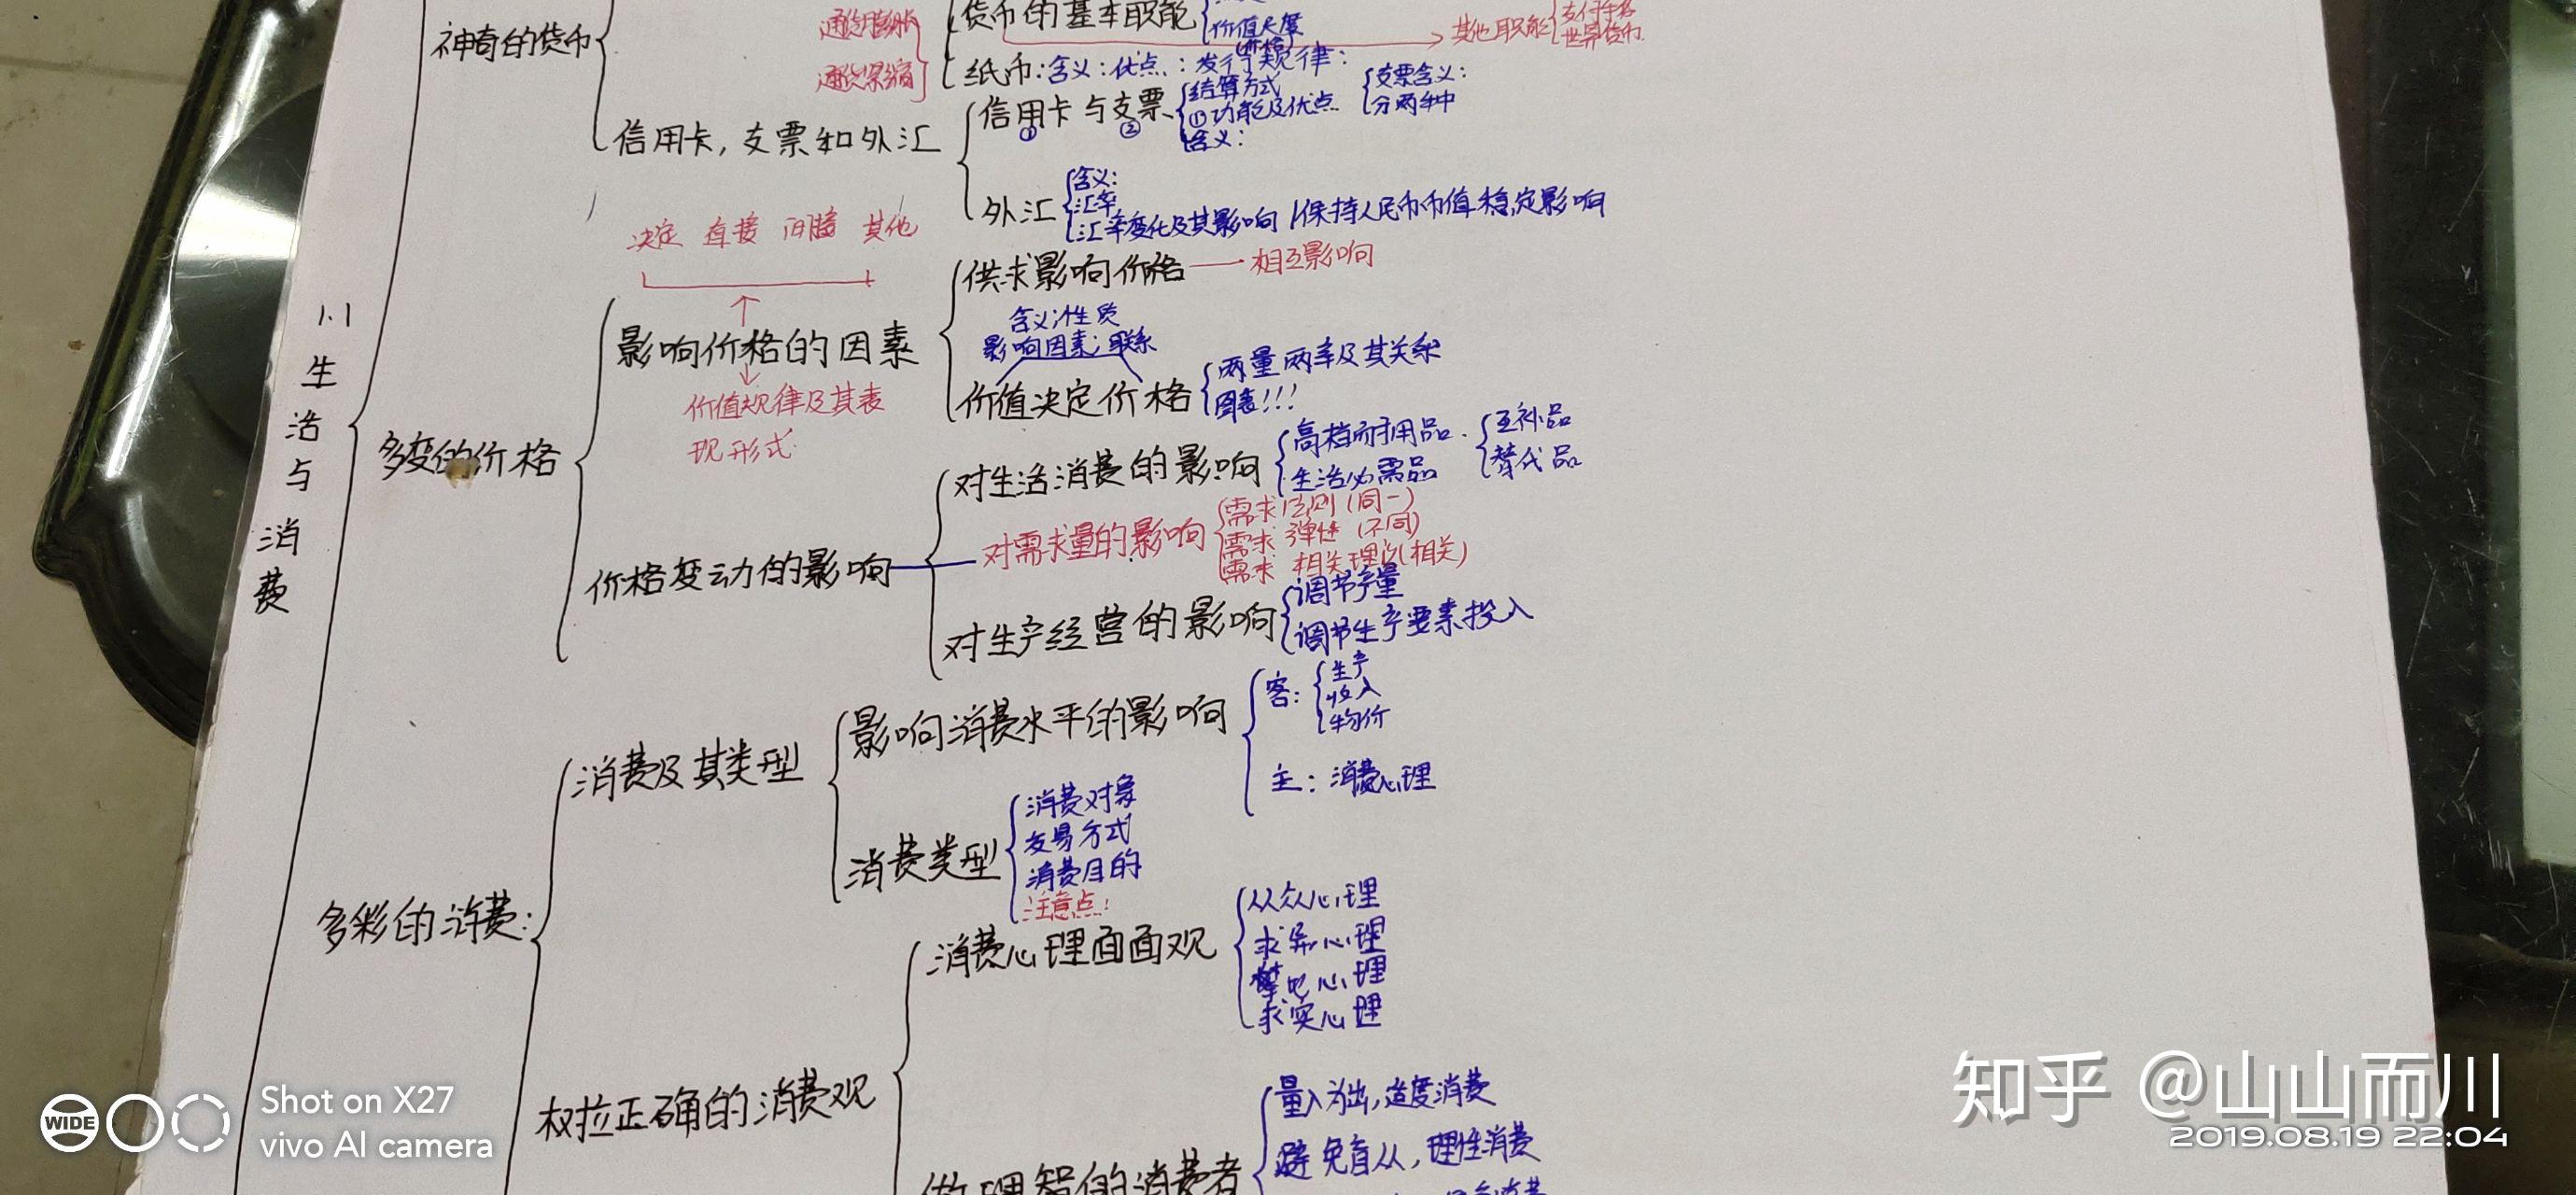 1.1 生活与消费
神奇的货币
通货膨胀
通货紧缩
货币的基本职能
价值尺度
(价格)
其他职能
支付手段
世界货币.
纸币:含义:优点:发行规律:
信用卡,支票和外汇
信用卡与支票
① ②
结算方式
①功能及优点
含义:
支票含义:
分两种
外汇
含义:
汇率
汇率变化及其影响 保持人民币币值稳定影响
多变的价格
决定 直接 间接 其他
影响价格的因素
价值规律及其表
现形式.
供求影响价格——相互影响
含义;性质
影响因素;联系
价值决定价格
两量两率及其关系
图表!!!
价格变动的影响
对生活消费的影响
高档耐用品.
生活必需品
互补品
替代品
对需求量的影响
需求法则(同一)
需求 弹性 (不同)
需求 相关理论(相关)
对生产经营的影响
调节产量
调节生产要素投入
多彩的消费:
消费及其类型
影响消费水平的影响
客:
生产
收入
物价
主:消费心理
消费类型
消费对象
交易方式
消费目的
注意点!
权拉正确的消费观
消费心理面面观
从众心理
求异心理
攀比心理
求实心理
做理智的消费者
量入为出,适度消费
避免盲从,理性消费
WIDE
Shot on X27
vivo AI camera
知乎 @山山而川
2019.08.19 22:04